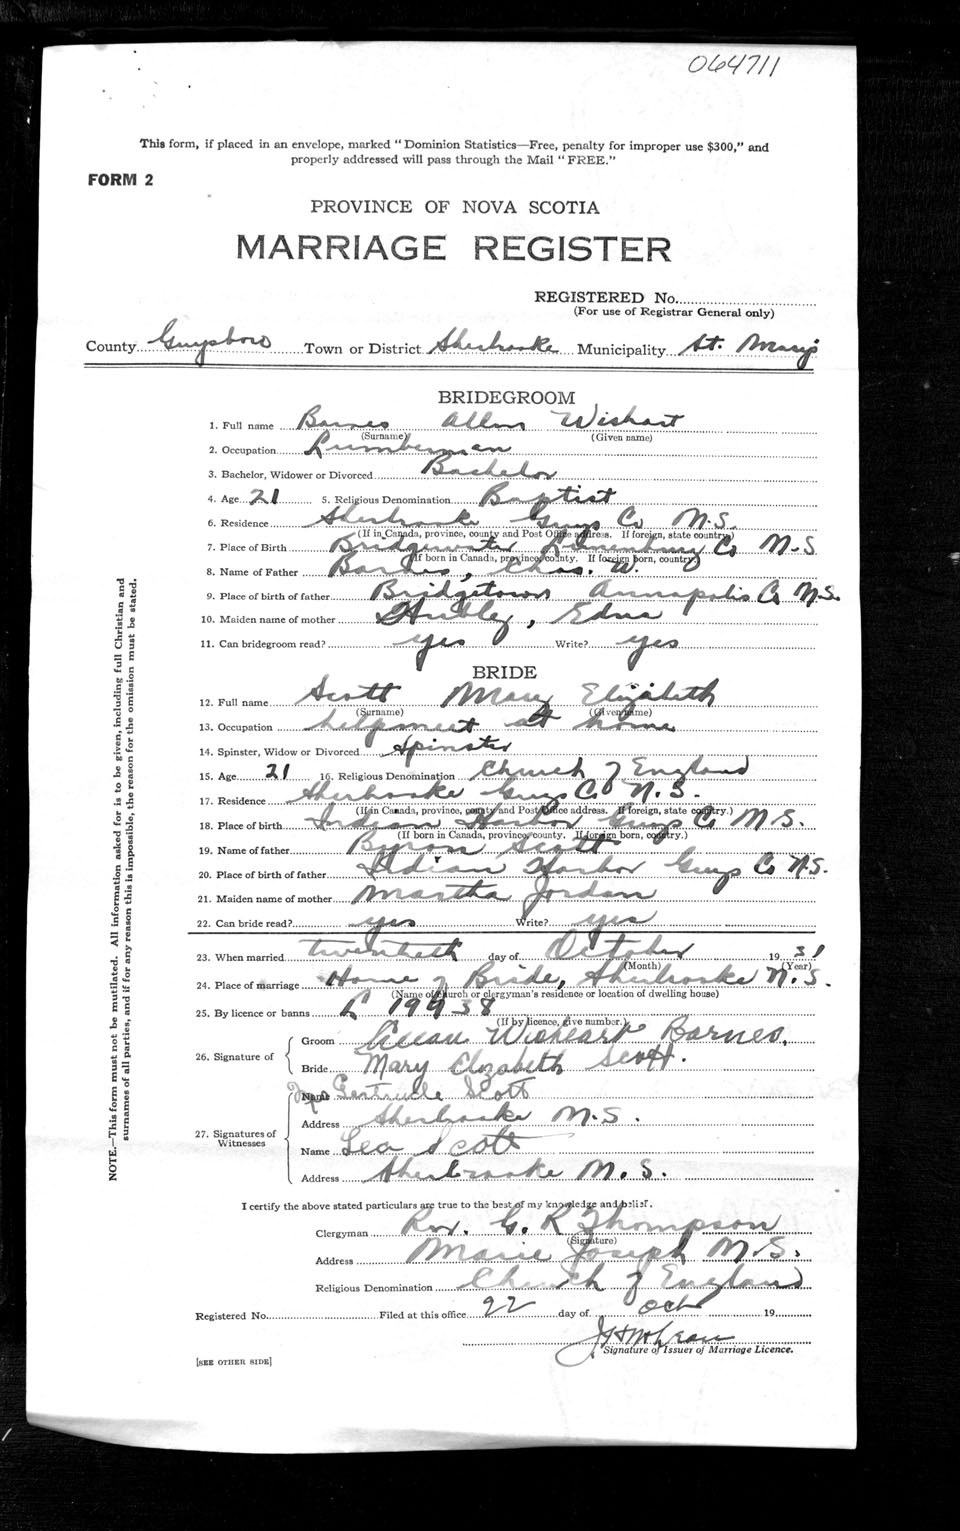 064711
This form, if placed in an envelope, marked "Dominion Statistics—Free, penalty for improper use $300," and
properly addressed will pass through the Mail "FREE."
FORM 2
PROVINCE OF NOVA SCOTIA
MARRIAGE REGISTER
REGISTERED No.
(For use of Registrar General only)
County Guysboro Town or District Sherbrooke Municipality St. Mary's
BRIDEGROOM
1. Full name Barnes Allen Wishart
(Surname) (Given name)
2. Occupation Lumberman
3. Bachelor, Widower or Divorced Bachelor
4. Age 21 5. Religious Denomination Baptist
6. Residence Sherbrooke Guys Co N.S.
(If in Canada, province, county and Post Office address. If foreign, state country.)
7. Place of Birth Bridgewater Lunenburg Co N.S
(If born in Canada, province, county. If foreign born, country.)
8. Name of Father Barnes, Chas. W.
9. Place of birth of father Bridgetown Annapolis Co N.S.
10. Maiden name of mother Hubley, Edna
11. Can bridegroom read? yes Write? yes
BRIDE
12. Full name Scott Mary Elizabeth
(Surname) (Given name)
13. Occupation helpmeet at home
14. Spinster, Widow or Divorced Spinster
15. Age 21 16. Religious Denomination Church of England
17. Residence Sherbrooke Guys Co. N.S.
(If in Canada, province, county and Post Office address. If foreign, state country.)
18. Place of birth Indian Harbor Guys Co N.S.
(If born in Canada, province, county. If foreign born, country.)
19. Name of father Byron Scott
20. Place of birth of father Indian Harbor Guys Co N.S.
21. Maiden name of mother Martha Jordan
22. Can bride read? yes Write? yes
23. When married twentieth day of October 1931
(Month) (Year)
24. Place of marriage Home of Bride, Sherbrooke N.S.
(Name of church or clergyman's residence or location of dwelling house)
25. By licence or banns L 19938
(If by licence, give number.)
26. Signature of
Groom Allan Wisheart Barnes.
Bride Mary Elizabeth Scott.
27. Signatures of Witnesses
Name Mrs Gertrude Scott
Address Sherbrooke N.S.
Name Leo Scott
Address Sherbrooke N.S.
I certify the above stated particulars are true to the best of my knowledge and belief.
Clergyman Rev. G. R Thompson
(Signature)
Address Marie Joseph N.S.
Religious Denomination Church of England
Registered No. Filed at this office 22 day of Oct 19
Signature of Issuer of Marriage Licence.
[SEE OTHER SIDE]
NOTE.—This form must not be mutilated. All information asked for is to be given, including full Christian and
surnames of all parties, and if for any reason this is impossible, the reason for the omission must be stated.